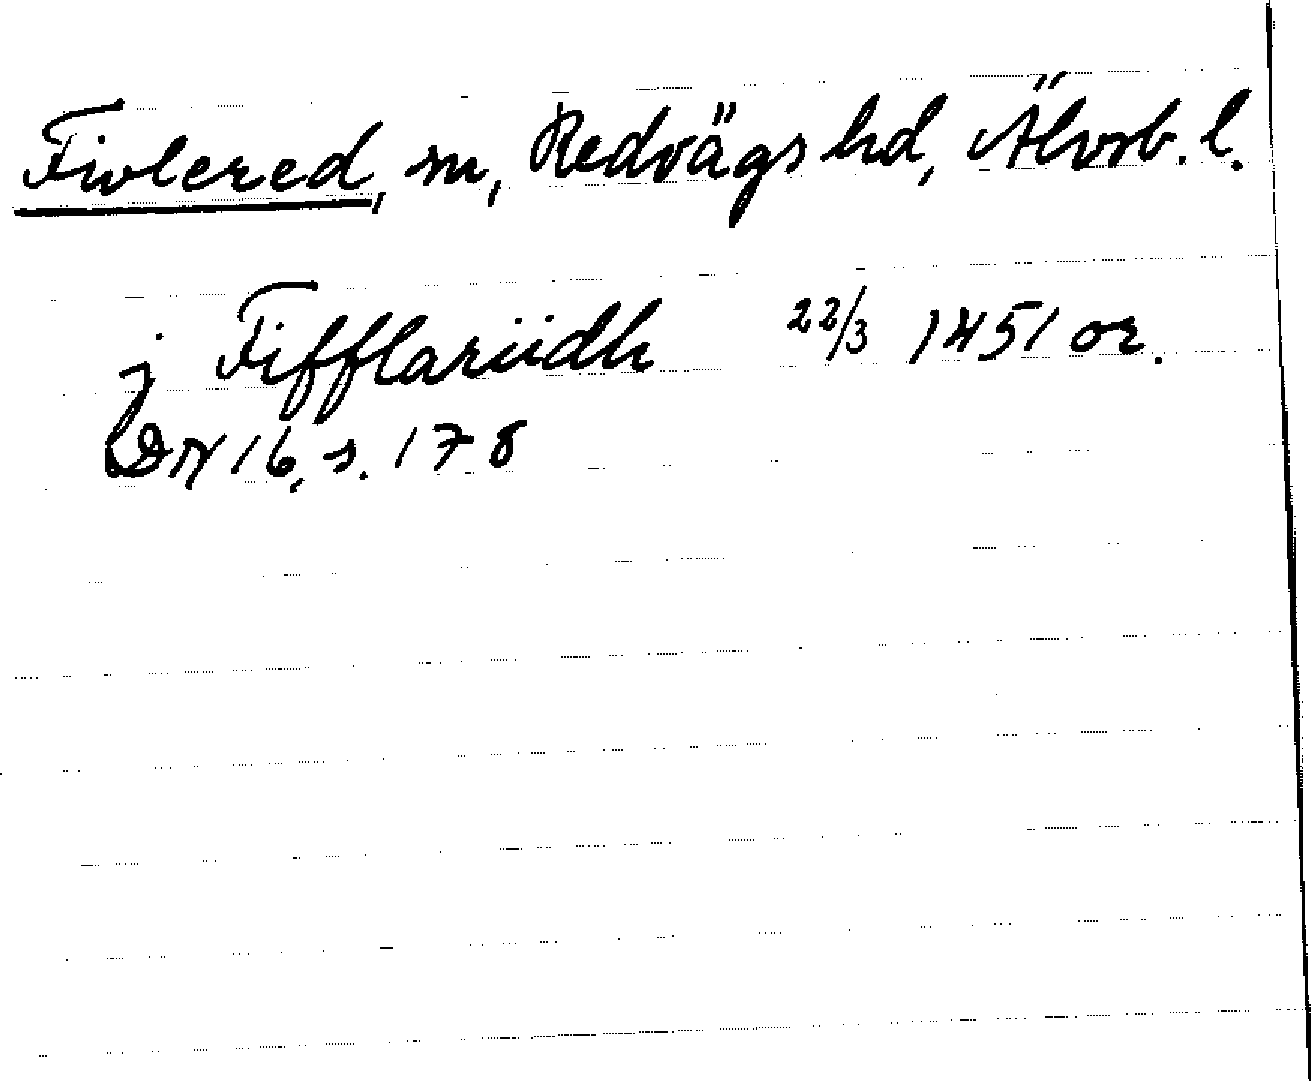 Fivlered, sn, Redvägs hd, Älvsb. l.
j Fifflarüdh 22/3 1451 or.
DN 16, s. 178